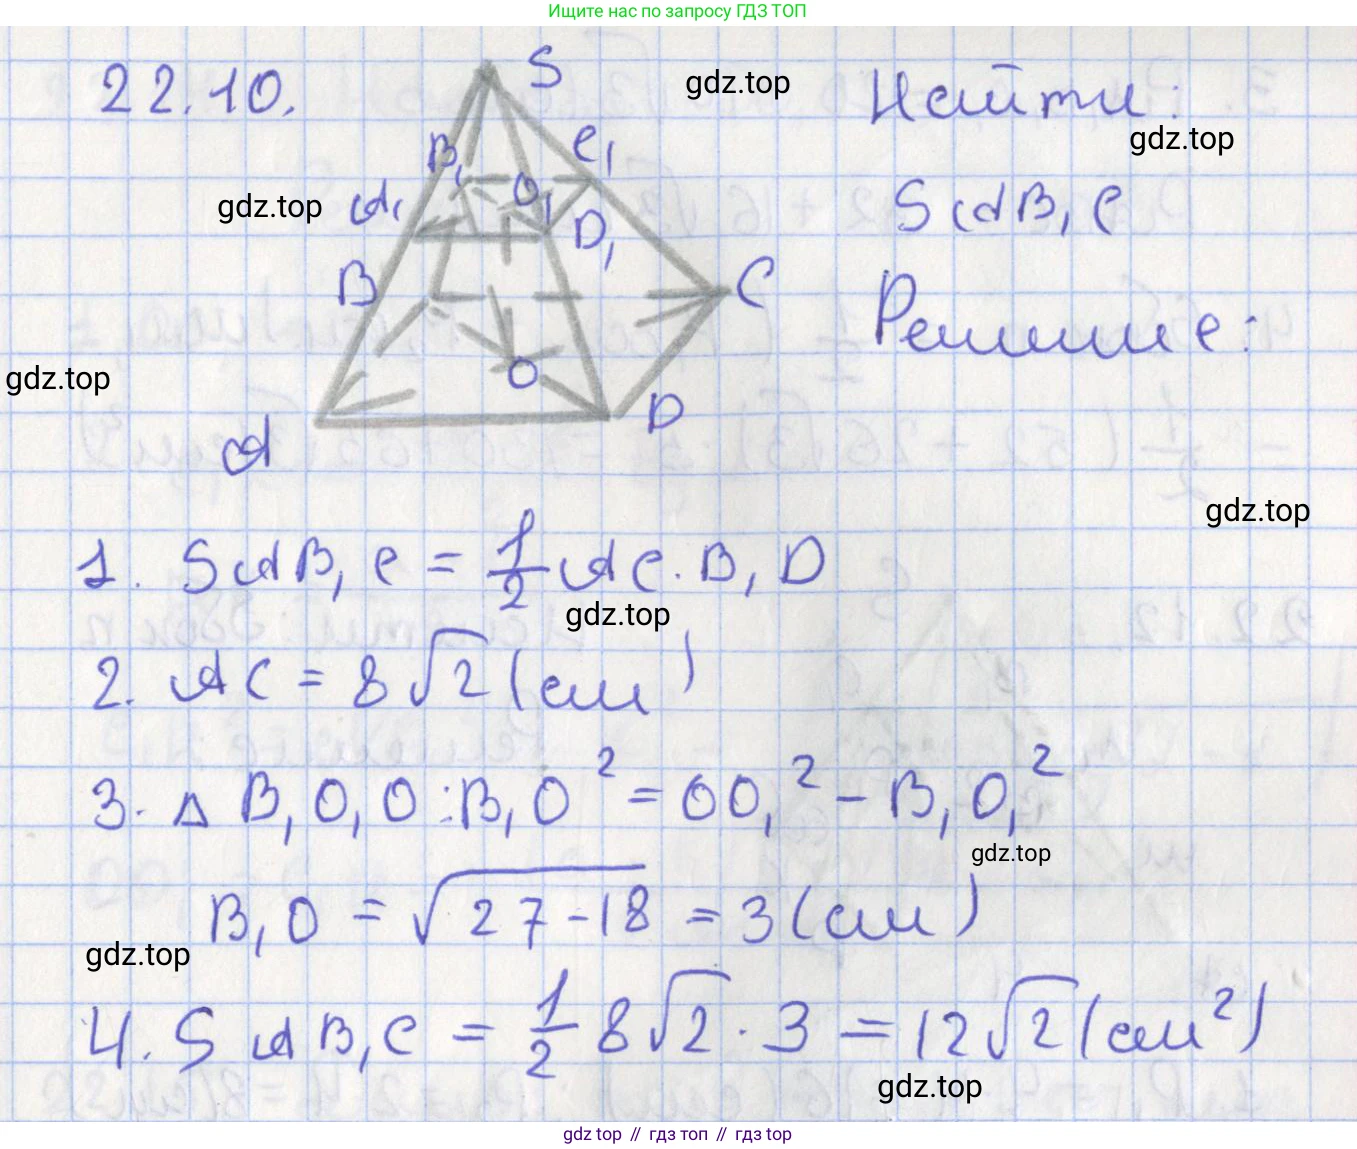 Ищите нас по запросу ГДЗ ТОП
22.10.
S
gdz.top
Найти:
gdz.top
B₁
C₁
gdz.top
A₁
O₁
D₁
S AB₁C
B
C
Решение:
gdz.top
O
A
D
gdz.top
1. S AB₁C = 1/2 AC · B₁D
gdz.top
2. AC = 8√2 (см)
3. △ B₁O₁O : B₁O² = OO₁² - B₁O₁²
gdz.top
B₁O = √27-18 = 3 (см)
gdz.top
4. S AB₁C = 1/2 8√2 · 3 = 12√2 (см²)
gdz.top
gdz top // гдз топ // гдз top